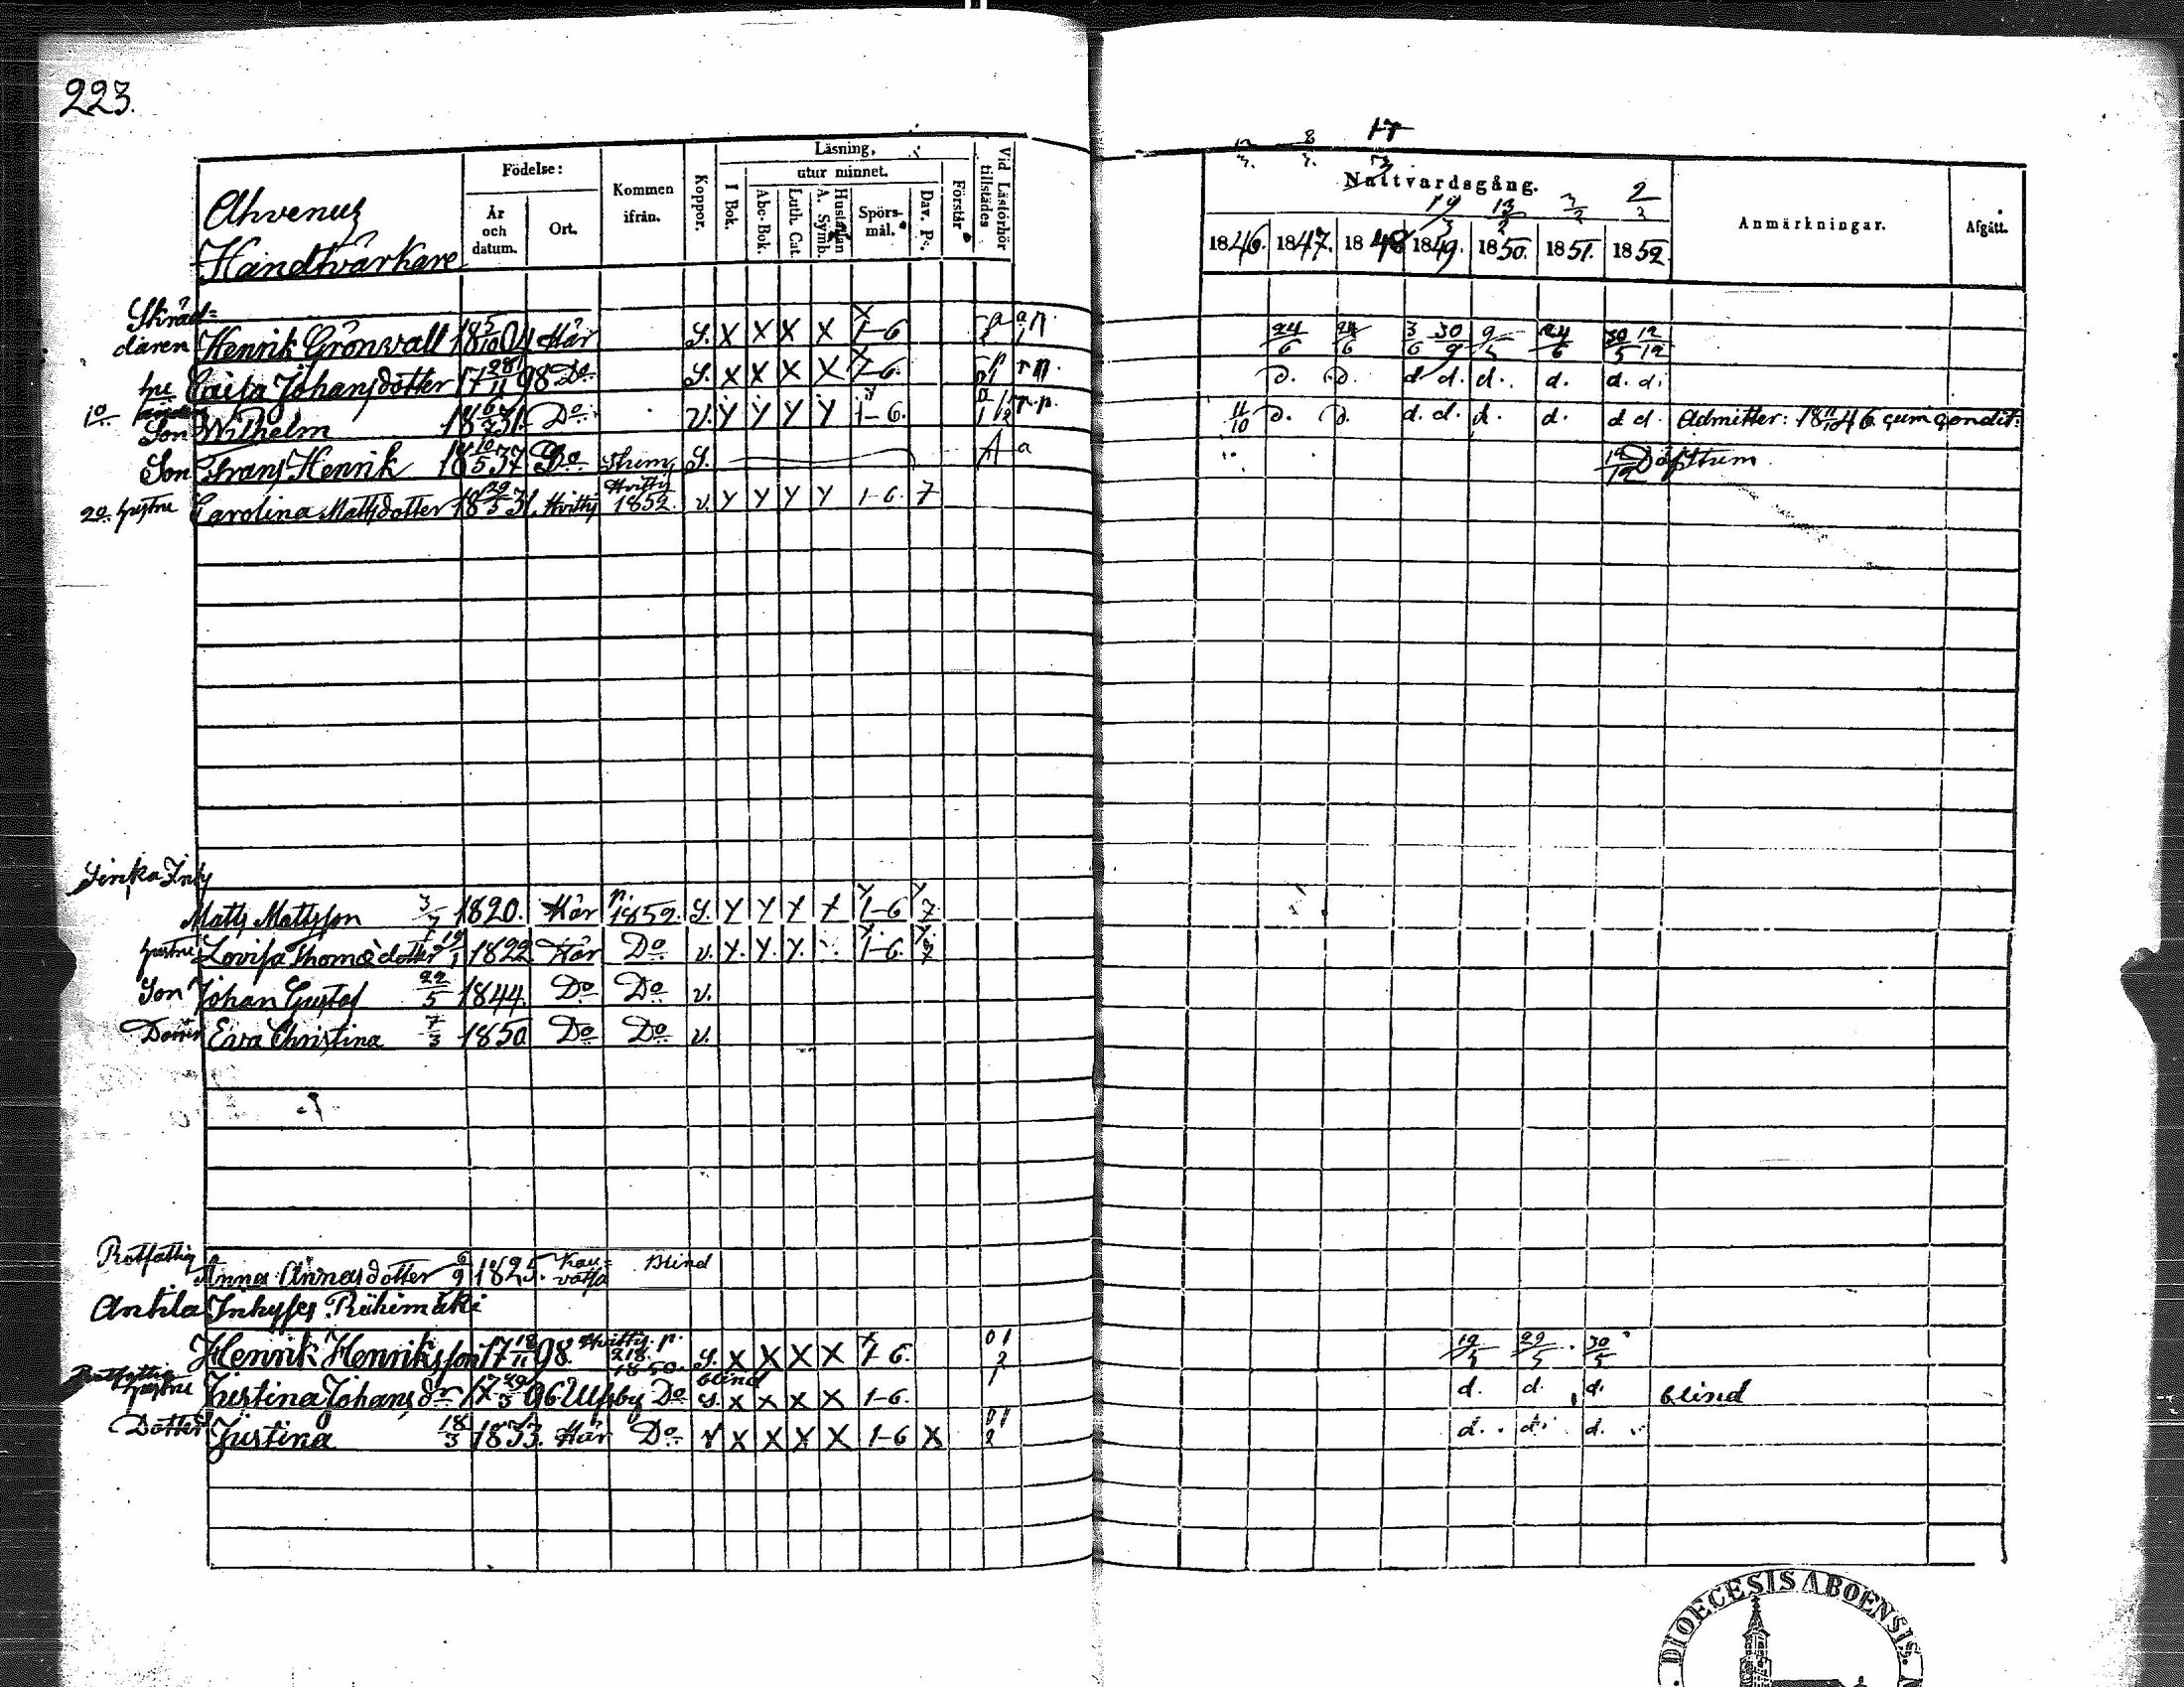 223.
Ahvenus
Handtvärkare
Födelse:
År och datum.
Ort.
Kommen ifrån.
Koppor.
Läsning,
I Bok.
utur minnet.
Abc-Bok.
Luth. Cat.
Hustaflan A. Symb.
Spörs-mål.
Dav. Ps.
Förstår
Vid Läsförhör tillstädes
Nattvardsgång.
17
19/3 13/2 2/3
1846. 1847. 1848 1849. 1850. 1851. 1852.
Anmärkningar.
Afgått.
Skräd=
daren Henrik Grönvall 18 5/10 04 Här S. X X X X 1-6 24/6 24/6 3/6 30/9 9/5 24/6 30/5 12/12
Caisa Johansdotter 17 28/11 98 Do S. X X X X 1-6. d. d. d d. d. d. d. d.
Son Wilhelm 18 6/7 31. Do v. Y Y Y Y 1-6. 11/10 d. d. d. d. d. d. d d. Admitter: 18 11/10 46 cum condit:
Son Frans Henrik 18 10/5 37 Do S. A a
2o hustru Carolina Mattsdotter 18 29/3 31. Hvittis Hvittis 1852. v. Y Y Y Y 1-6. 7
Matts Mattsson 3/7 1820. Här 1852. S. Y Y Y Y 1-6 7
hustru Lovisa Thomædotter 19/1 1822 Här Do v. Y. Y. Y. 1-6. 7
Son Johan Gustaf 22/5 1844. Do Do v.
Dotter Eva Christina 7/3 1850 Do Do v.
Rotfattig
Anna Annasdotter 6/9 1825. Kau=vatsa Blind
Antila Inhyses Riihimäki
Henrik Henriksson 17 18/11 98. Hvittis p. 218. 1850. S. X X X X 1-6. 19/5 29/5 30/5
Rotfattig
hustru Justina Johansdr 17 29/3 96 Ulfsby Do blind S. X X X X 1-6. d. d. d. blind
Dotter Justina 18/3 1833. Här Do v X X X X 1-6 X d. d. d.
DIOECESIS ABOENSIS